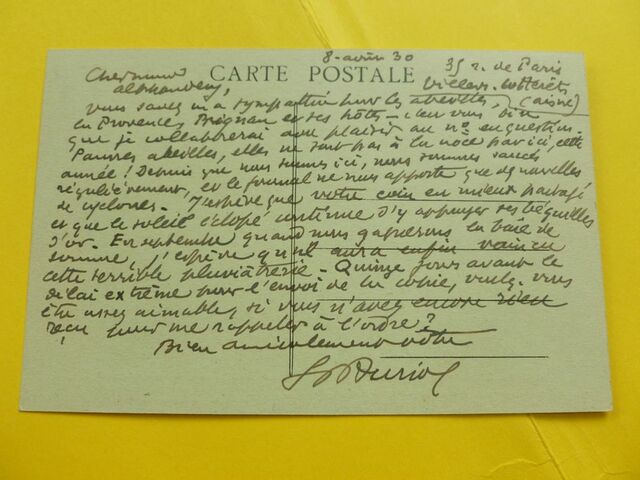 8 - août 30
35 r. de Paris
Cher monsieur CARTE POSTALE Villers-Cotterêts
Alphandéry, (Aisne)
vous savez ma sympathie pour les abeilles,
la Provence, Brignan et ses hôtes - c'est vous dire
que je collaborerai avec plaisir au no en question.
Pauvres abeilles, elles ne sont pas à la noce par ici, cette
année ! Depuis que nous sommes ici, nous sommes saucés
régulièrement, et le journal ne nous apporte que des nouvelles
de cyclones. J'espère que votre coin est mieux partagé
et que le soleil éclopé continue d'y appuyer ses béquilles
d'or. En septembre quand nous gagnerons la baie de
Somme, j'espère qu'il aura enfin vaincu
cette terrible Quinze jours avant le
délai extrême pour l'envoi de la copie, voulez-vous
être assez aimable, si vous n'avez encore rien
reçu pour me rappeler à l'ordre ?
Bien amicalement vôtre